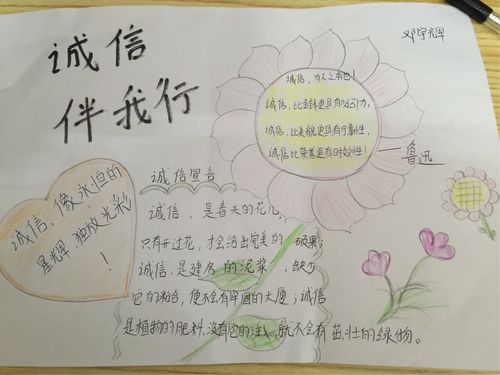 诚信
伴我行
邓宇辉
诚信,为人之本也!
诚信,比金钱更具有吸引力,
诚信,比美貌更具有可靠性,
诚信比荣誉更有时效性!
——鲁迅
诚信,像永恒的
星光,独放光彩
!
诚信宣言
诚信,是春天的花儿,
只有开过花,才会结出完美的 硕果;
诚信,是建房 的泥浆 ,缺少
它的粘合,便不会有牢固的大厦;诚信
是植物的肥料,没有它的 就不会有茁壮的绿物。